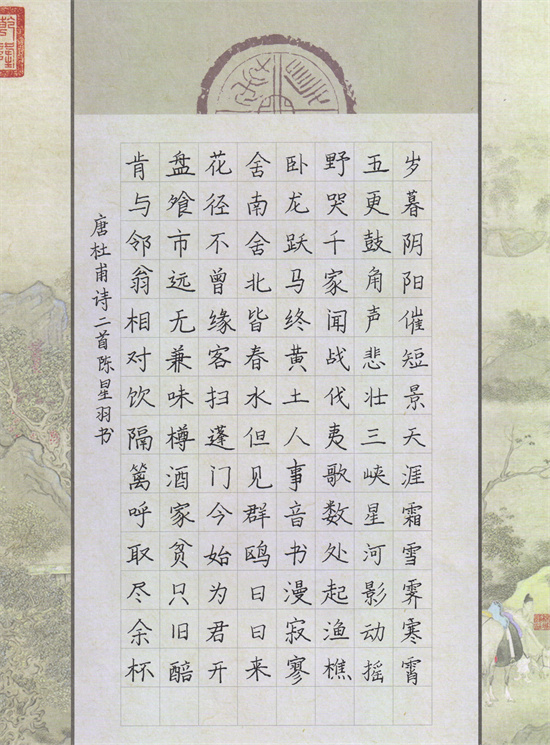 岁暮阴阳催短景天涯霜雪霁寒霄
五更鼓角声悲壮三峡星河影动摇
野哭千家闻战伐夷歌数处起渔樵
卧龙跃马终黄土人事音书漫寂寥
舍南舍北皆春水但见群鸥日日来
花径不曾缘客扫蓬门今始为君开
盘飧市远无兼味樽酒家贫只旧醅
肯与邻翁相对饮隔篱呼取尽余杯
唐杜甫诗二首陈星羽书